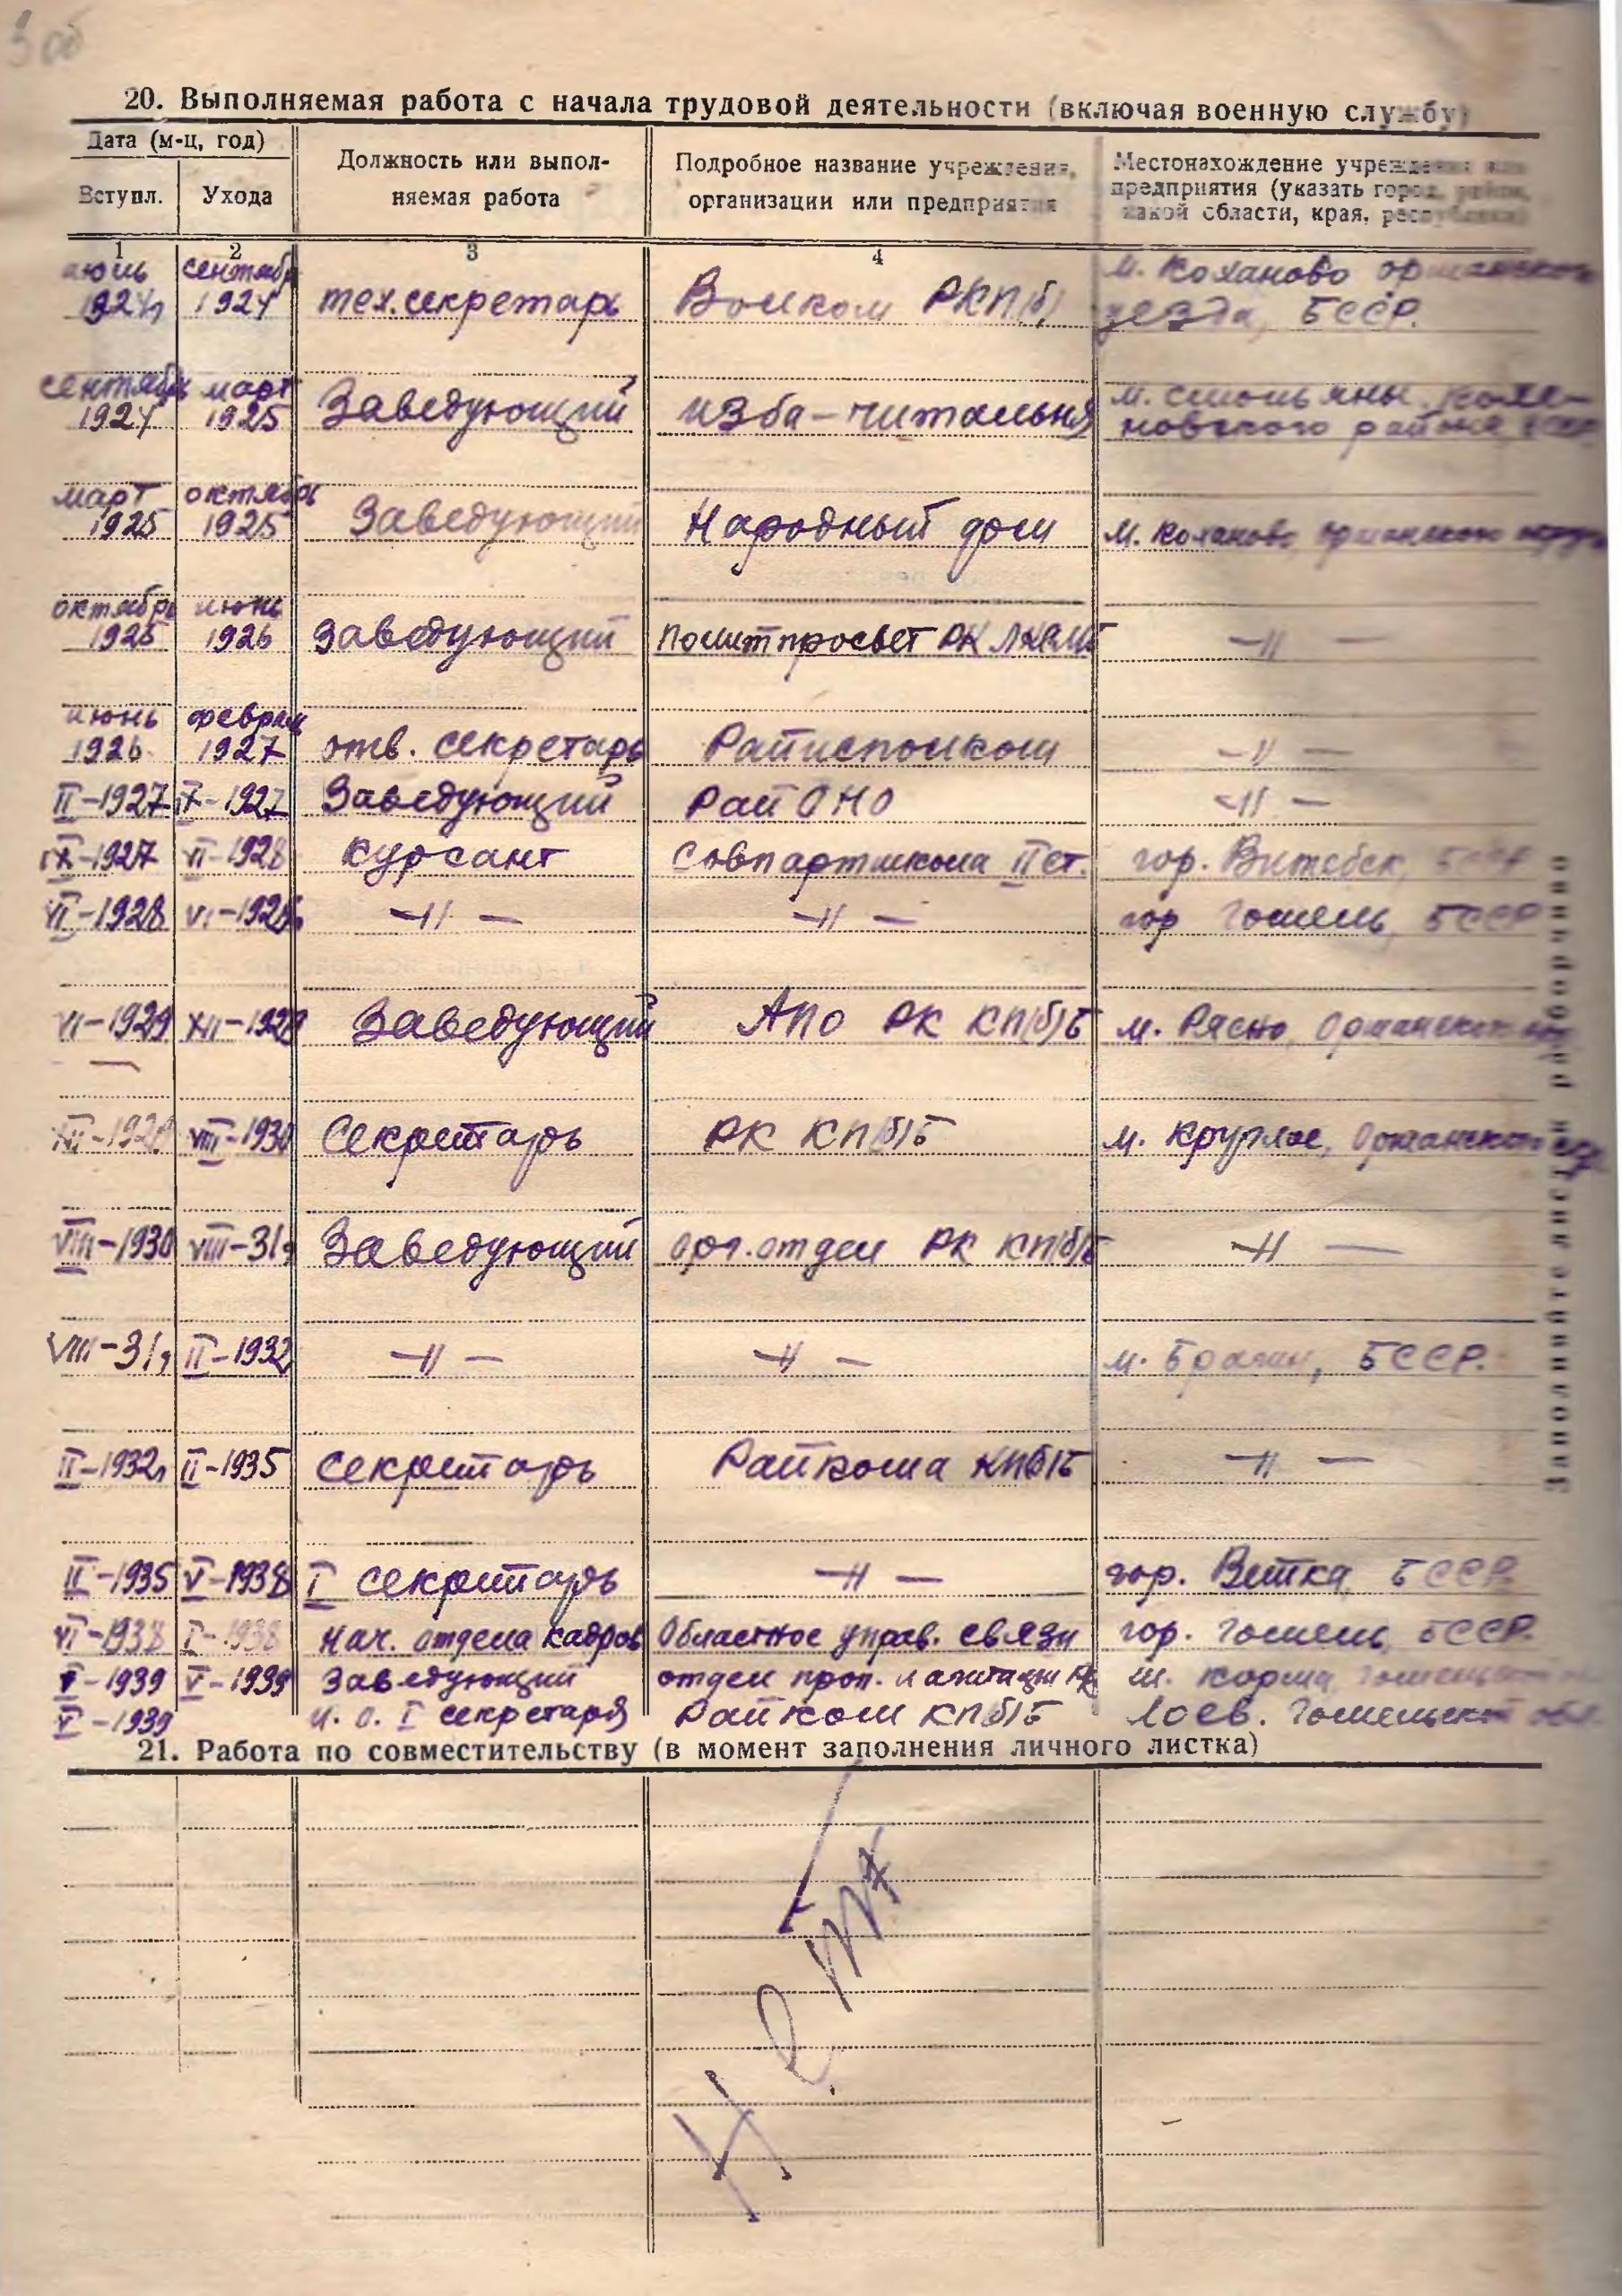 3 об
20. Выполняемая работа с начала трудовой деятельности (включая военную службу)
Дата (м-ц, год)
Вступл. Ухода
Должность или выпол-
няемая работа
Подробное название учреждения,
организации или предприятия
Местонахождение учреждения или
предприятия (указать город, район,
какой области, края, республики)
1 2 3 4
сентябрь м. Коханово Оршанского
1924 1924 тех.секретарь Волком РКП(б) уезда, БССР.
сентябрь март м. Смольяны Коха-
1924 1925 Заведующий изба-читальня новского района БССР
март октябрь
1925 1925 Заведующий Народный дом м. Коханово Оршанского округа
октябрь июнь
1925 1926 Заведующий Политпросвет РК ЛКСМБ —〃—
июнь февраль
1926 1927 отв. секретарь Райисполком —〃—
II-1927 IX-1927 Заведующий Рай ОНО —〃—
IX-1927 VI-1928 курсант Совпартшкола II ст. гор. Витебск, БССР
VI-1928 VI-192 —〃— —〃— гор Гомель, БССР
VI-1929 XII-1929 Заведующий АПО РК КП(б)Б м. Рясно, Оршанского окр
XII-1929 VIII-1930 Секретарь РК КП(б)Б м. Круглое, Оршанского окр
VIII-1930 VIII-31г Заведующий орг.отдел РК КП(б)Б —〃—
VIII-31г II-1932 —〃— —〃— м. Брагин, БССР.
II-1932г II-1935 Секретарь Райкома КП(б)Б —〃—
II-1935 V-1938 I секретарь —〃— гор. Ветка, БССР.
VI-1938 I-1938 нач. отдела кадров Областное управ. связи гор. Гомель, БССР.
V-1939 Заведующий отдел проп. и агитации РК м. Корма, Гомельской
V-1939 и. о. I секретаря Райком КП(б)Б Лоев. Гомельской обл.
Заполняйте листок разборчиво
21. Работа по совместительству (в момент заполнения личного листка)
Нет